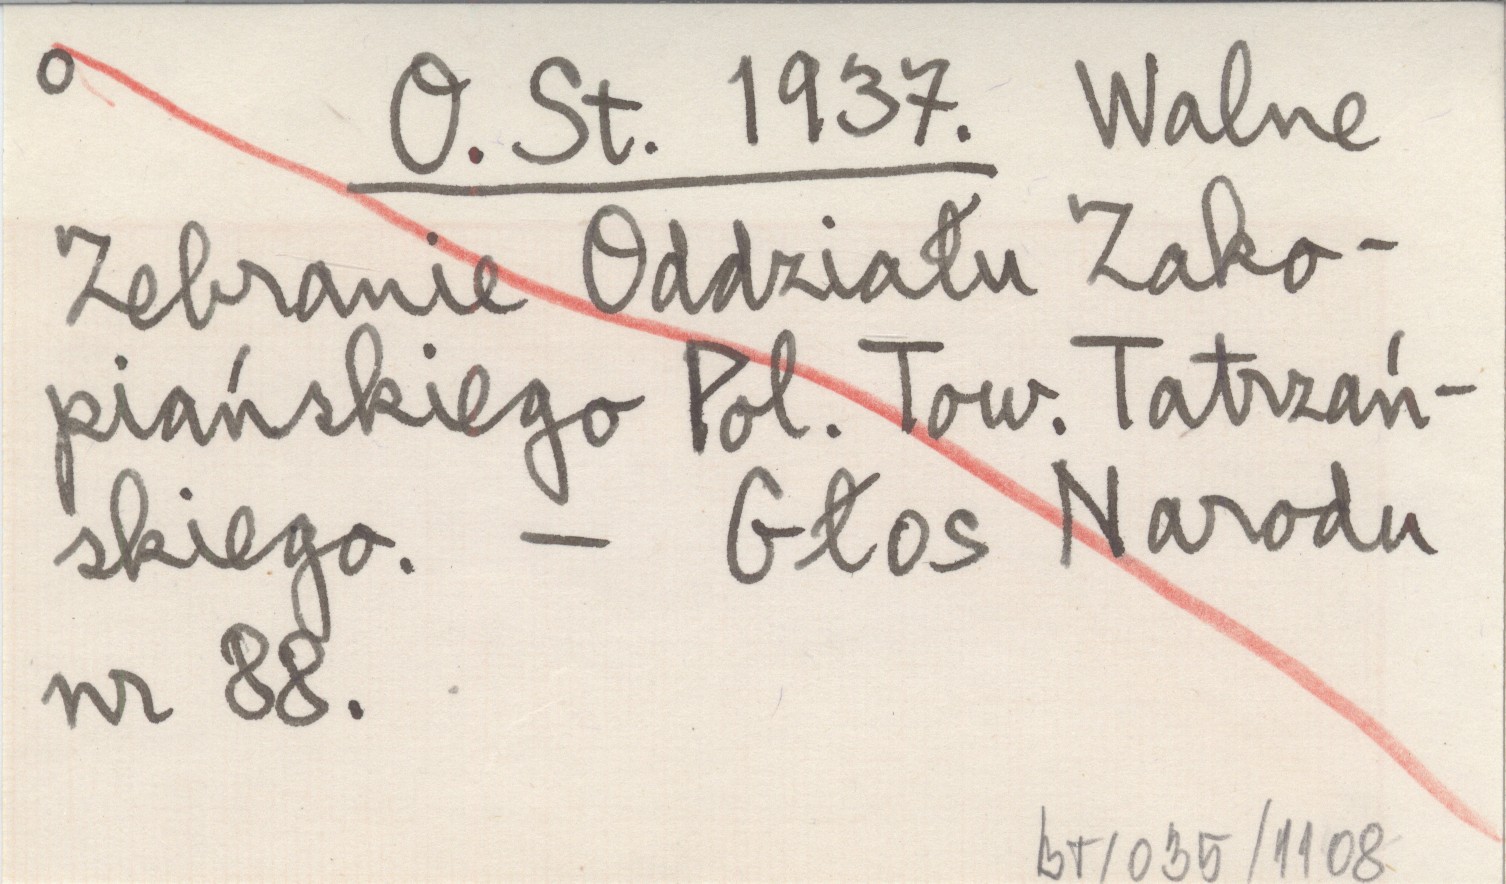 o O. St. 1937. Walne
Zebranie Oddziału Zako-
piańskiego Pol. Tow. Tatrzań-
skiego. — Głos Narodu
nr 88.
bT/035/1108